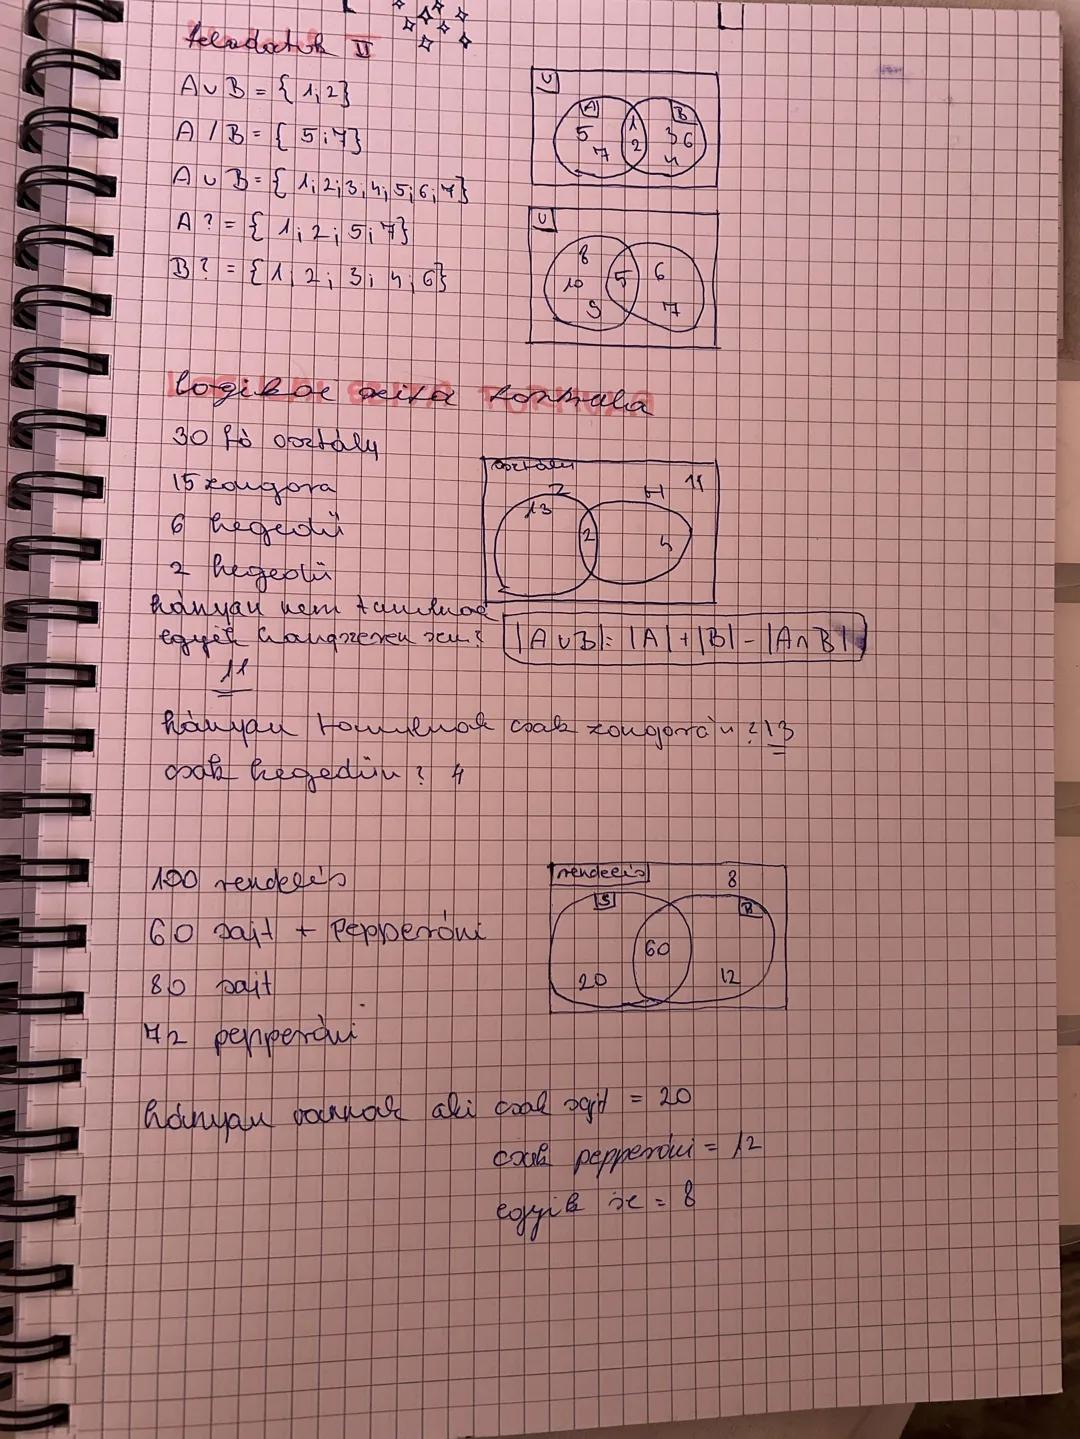 feladatok II
A∪B = { 1;2}
A / B = { 5;7}
A∪B = { 1;2;3;4;5;6;7}
A ? = { 1;2;5;7}
B ? = {1;2;3;4;6}
U
A
B
5
7
1
2
3 6
4
U
8
10
9
5
6
7
logikai szita formula
30 fő osztály
15 zongora
6 hegedű
2 hegedű
hányan nem tanulnak
egyik hangszeren sem?
11
osztály
Z
H
11
13
2
4
|A∪B| = |A| + |B| - |A∩B|
hányan tanulnak csak zongorán? 13
csak hegedűn? 4
100 rendelés
60 sajt + Pepperóni
80 sajt
72 pepperóni
rendelés
8
S
P
60
20
12
hányan vannak aki csak sajt = 20
csak pepperóni = 12
egyik se = 8